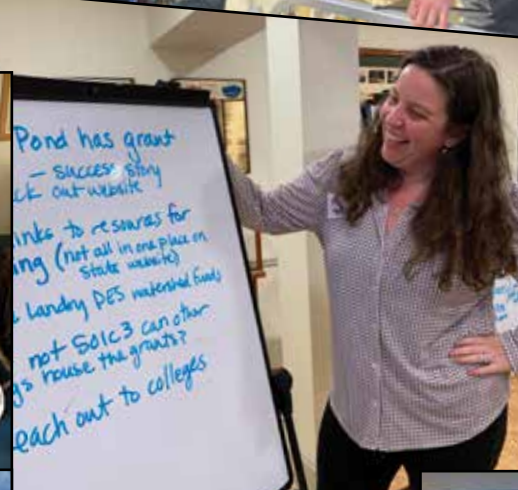 Pond has grant
– success story
ck out website
inks to resouras for
ing (not all in one place on
state website)
Landry DES watershed funds
not 501c3 can other
gs house the grants?
each out to colleges